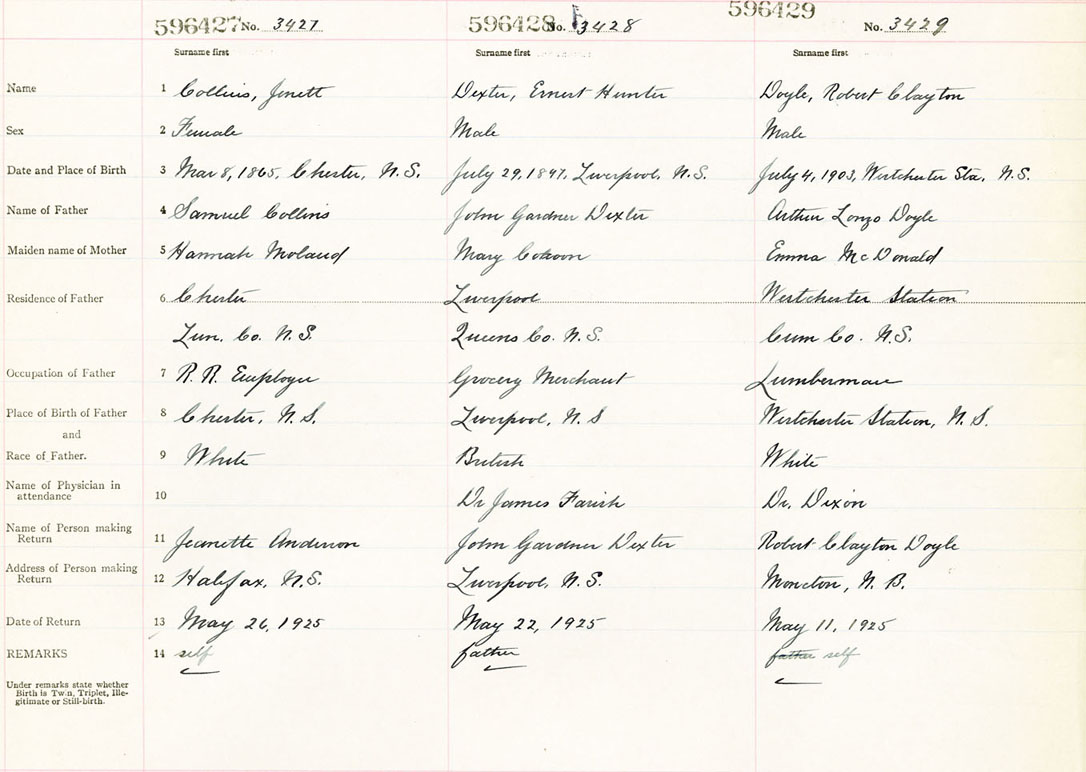 596427 No. 3427 596428 No. 3428 596429 No. 3429
Surname first Surname first Surname first
Name 1 Collins, Jenett Dexter, Ernest Hunter Doyle, Robert Clayton
Sex 2 Female Male Male
Date and Place of Birth 3 Mar 8, 1865, Chester, N.S. July 29, 1897, Liverpool, N.S. July 4, 1903, Westchester Sta, N.S.
Name of Father 4 Samuel Collins John Gardner Dexter Arthur Lonzo Doyle
Maiden name of Mother 5 Hannah Moland Mary Emma McDonald
Residence of Father 6 Chester Liverpool Westchester Station
Lun. Co. N.S. Queens Co. N.S. Cum Co. N.S.
Occupation of Father 7 R. R. Employee Grocery Merchant Lumberman
Place of Birth of Father 8 Chester, N.S. Liverpool, N.S Westchester Station, N.S.
and
Race of Father. 9 White British White
Name of Physician in
attendance 10 Dr James Farish Dr. Dixon
Name of Person making
Return 11 Jeanette Anderson John Gardner Dexter Robert Clayton Doyle
Address of Person making
Return 12 Halifax, N.S. Liverpool, N.S. Moncton, N.B.
Date of Return 13 May 26, 1925 May 22, 1925 May 11, 1925
REMARKS 14 self father father self
Under remarks state whether
Birth is Twin, Triplet, Ille-
gitimate or Still-birth.